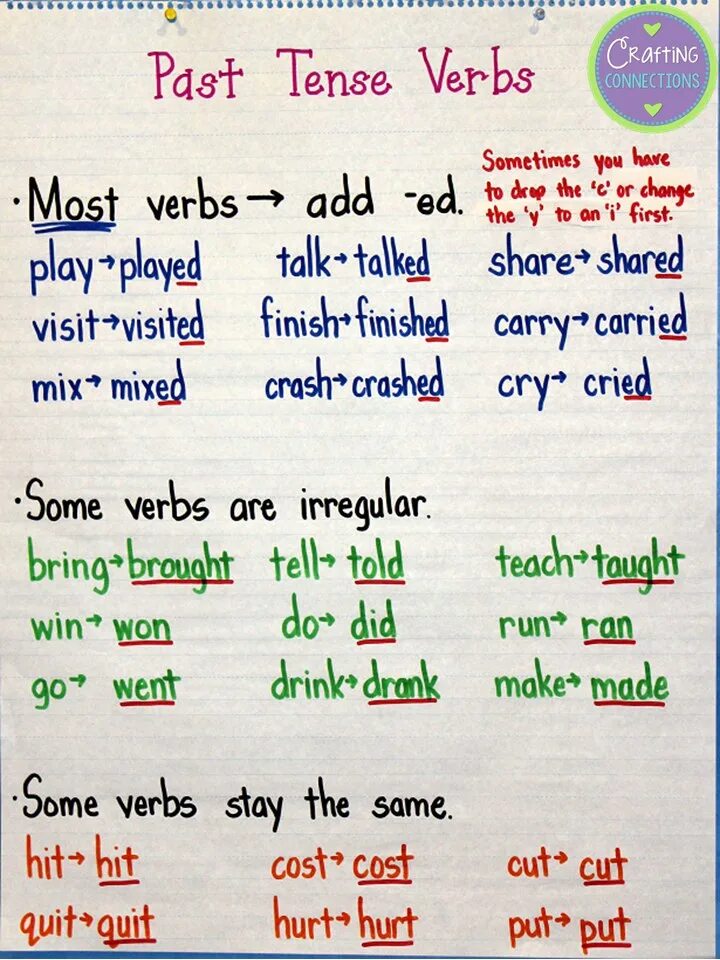 Crafting
CONNECTIONS
Past Tense Verbs
Sometimes you have
to drop the 'e' or change
the 'y' to an 'i' first.
·Most verbs→ add -ed.
play→played talk→talked share→shared
visit→visited finish→finished carry→carried
mix→ mixed crash→crashed cry→ cried
·Some verbs are irregular.
bring→brought tell→ told teach→taught
win→ won do→ did run→ ran
go→ went drink→drank make→ made
·Some verbs stay the same.
hit→hit cost→cost cut→ cut
quit→quit hurt→hurt put→put